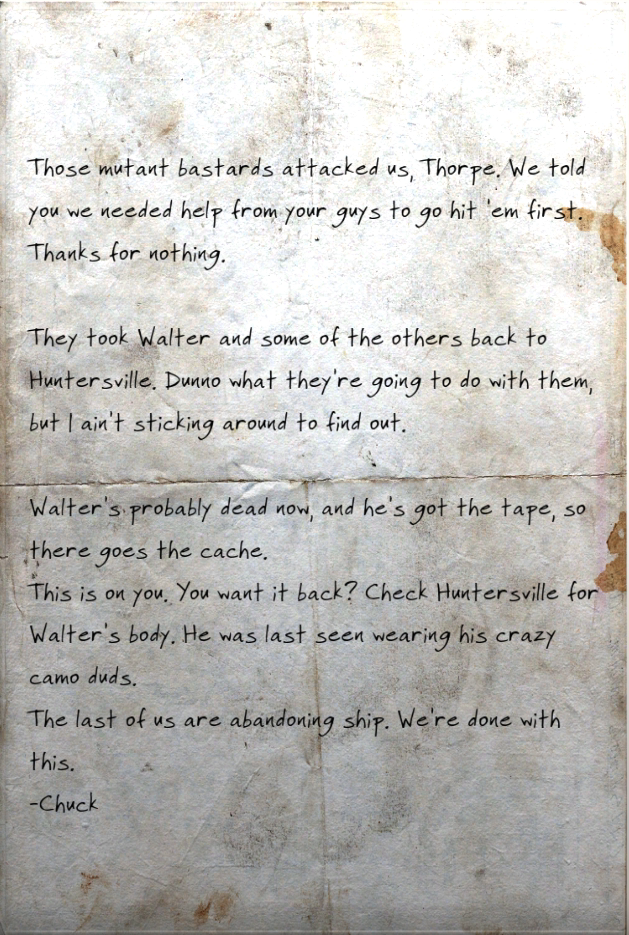 Those mutant bastards attacked us, Thorpe. We told
you we needed help from your guys to go hit 'em first.
Thanks for nothing.
They took Walter and some of the others back to
Huntersville. Dunno what they're going to do with them,
but I ain't sticking around to find out.
Walter's probably dead now, and he's got the tape, so
there goes the cache.
This is on you. You want it back? Check Huntersville for
Walter's body. He was last seen wearing his crazy
camo duds.
The last of us are abandoning ship. We're done with
this.
-Chuck